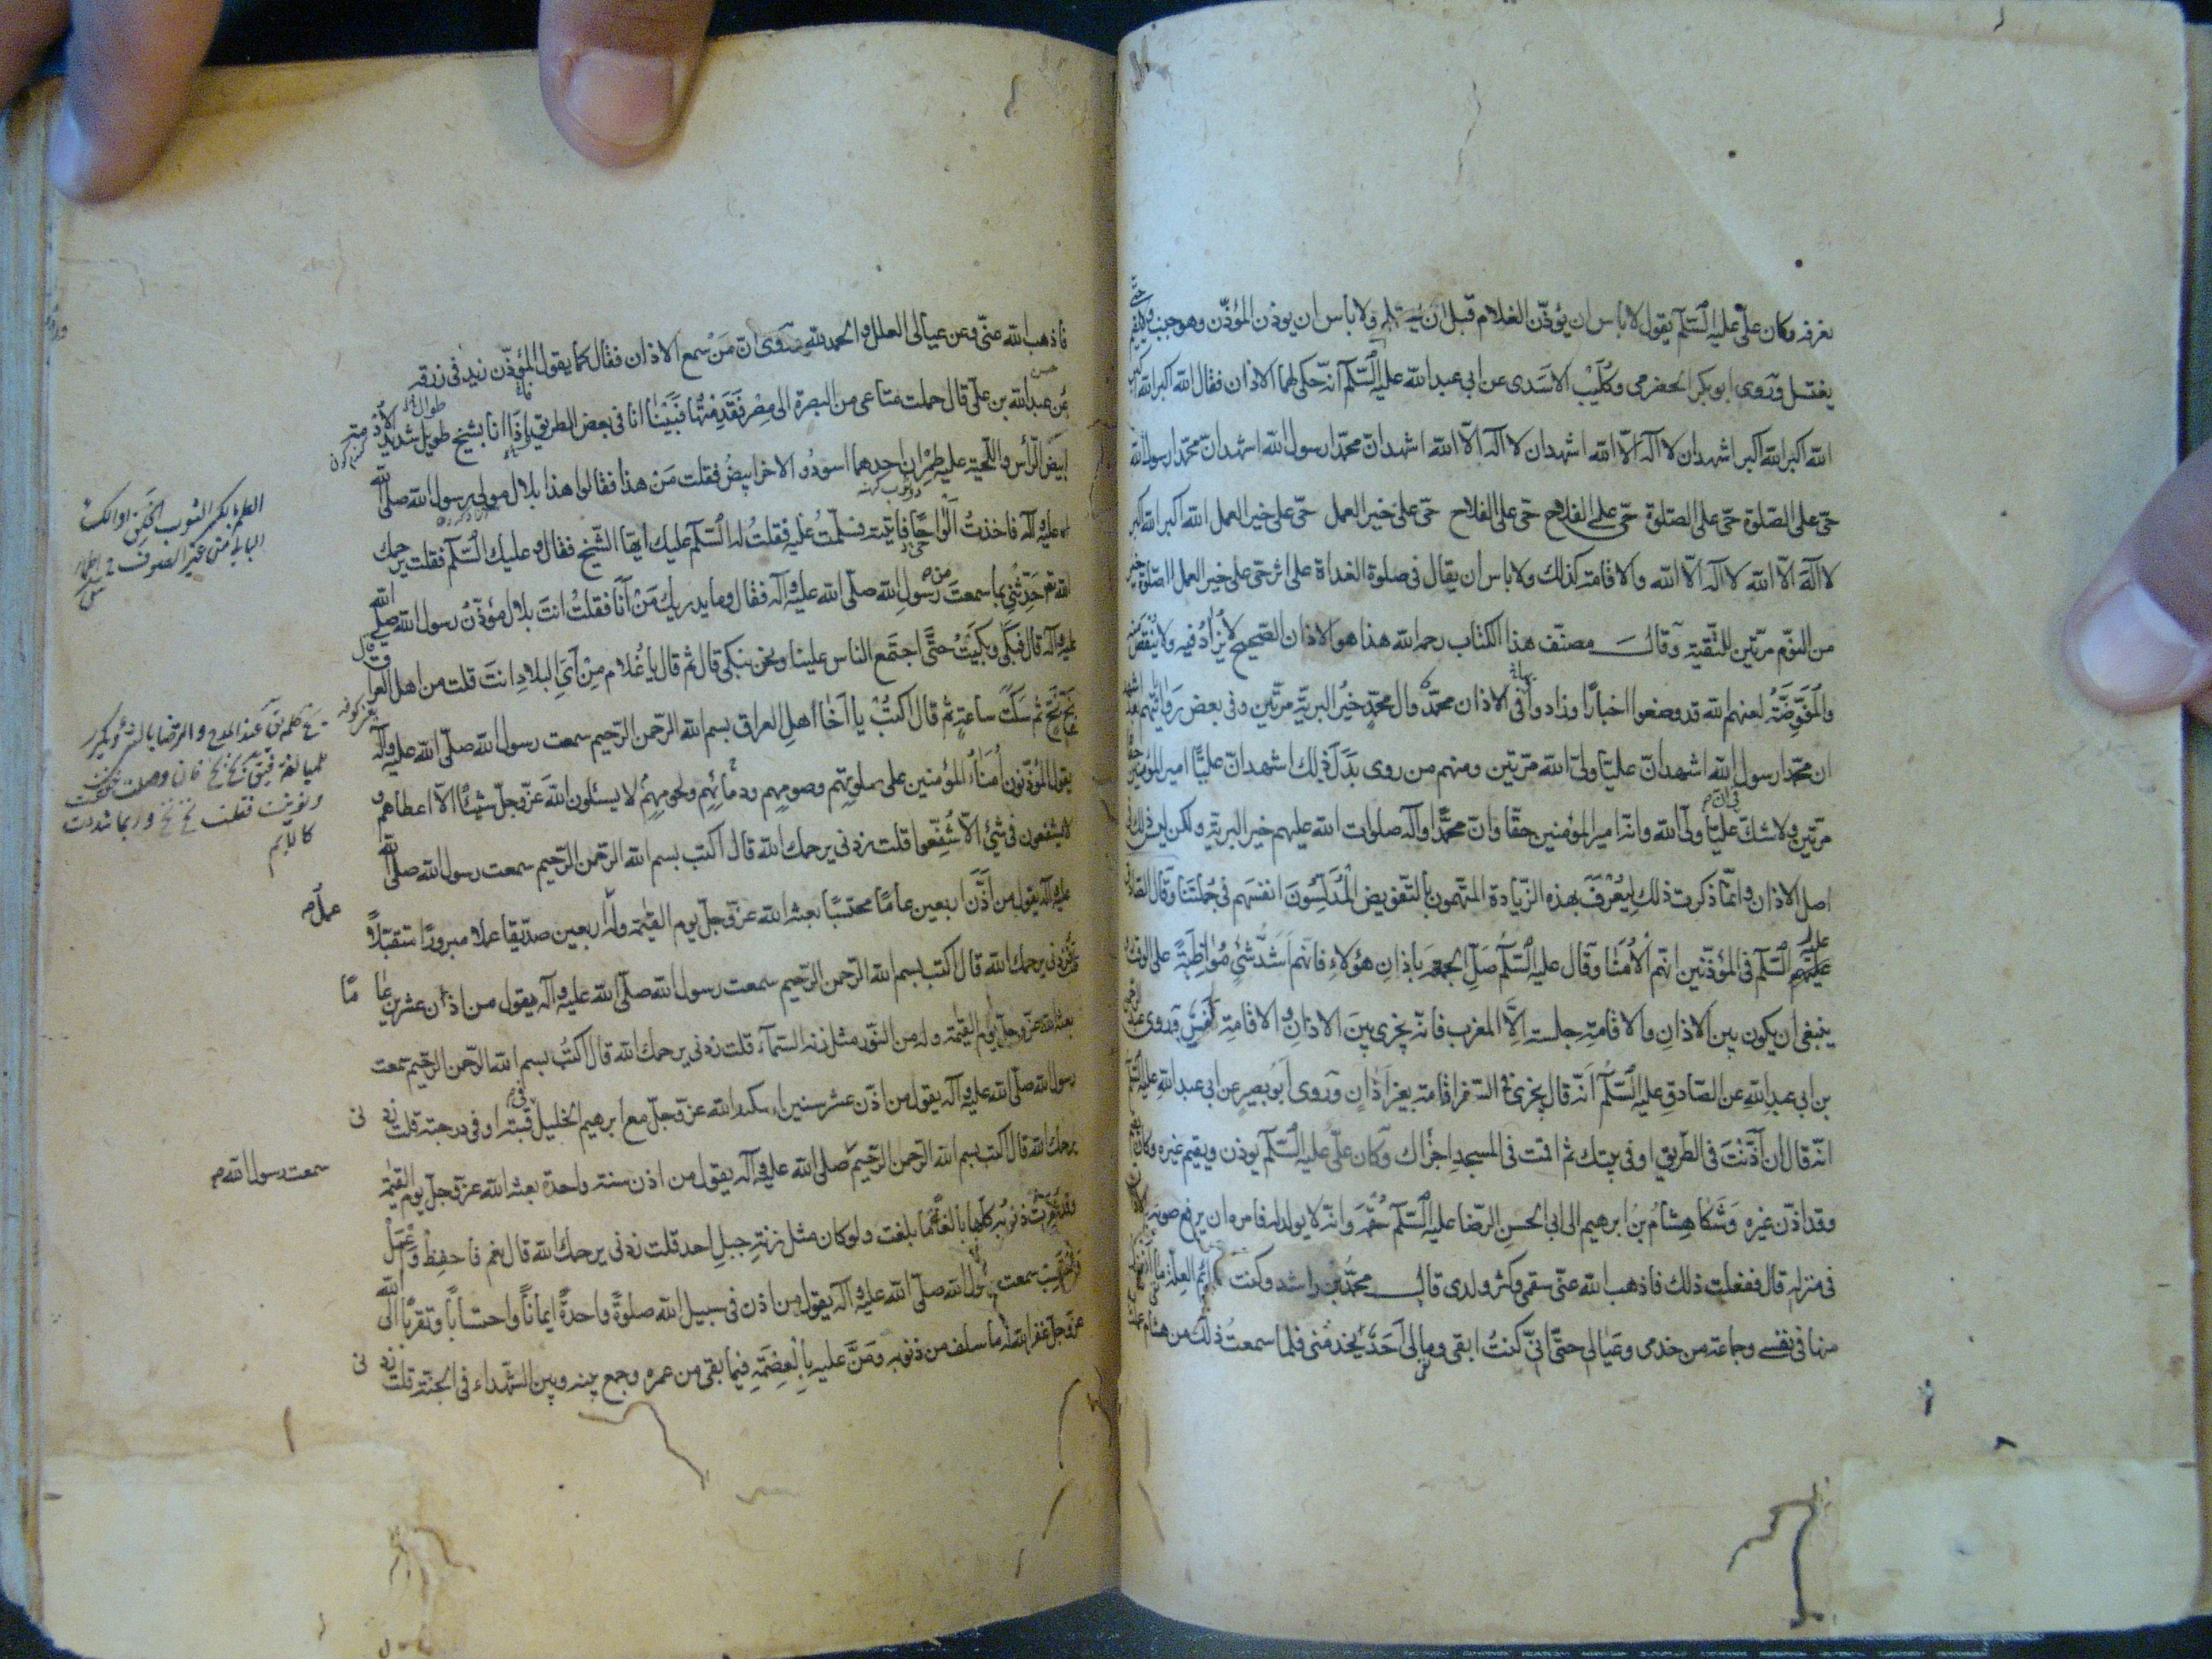 يعرفه وكان علىّ عليه السّلم يقول لا باس ان يؤذّن الغلام قبل ان يحتلم ولا باس ان يوذن المؤذّن وهو جنب ولا يقيم حتّى
يغتسل وَروى ابو بكر الحضرمى وكُلَيْب الاسَدى عن ابى عبد الله عليه السّلم انّه حكى لهما الاذان فقال الله اكبر الله اكبر
الله اكبر الله اكبر اشهد ان لا اله الّا الله اشهد ان لا اله الّا الله اشهد انّ محمّدا رسول الله اشهد انّ محمّدا رسول الله
حىّ على الصّلوة حىّ على الصّلوة حىّ على الفلاح حىّ على الفلاح حىّ على خير العمل حىّ على خير العمل الله اكبر الله اكبر
لا اله الّا الله لا اله الّا الله والاقامة كذلك ولا باس ان يقال فى صلوة الغداة على اثر حىّ على خير العمل الصّلوة خير
من النوّم مرّتين للتّقية وَقال مصنّف هذا الكتاب رحمه الله هذا هو الاذان الصّحيح لا يُزادُ فيه ولا يُنْقَصُ منه
والمُفَوِّضَةُ لعنهم الله قد وضعوا اخبارًا وزادوا فى الاذان محمّد وال محمّدٍ خيرُ البريّة مرّتين وفى بعض رَواياتهم بعد اشهد
ان محمّدا رسول الله اشهد انّ عليّا ولىّ الله مرّتين ومنهم من روى بَدَلَ ذلك اشهد انّ عليًّا امير المؤمنين حقّا
مرّتين ولا شكّ فى انّ عليّا ولىّ الله وانّه امير المؤمنين حقّا وَانّ محمّدًا وآله صلوات الله عليهم خير البريّة ولكن ليس ذلك فى
اصل الاذان وانّما ذكرت ذلك لِيُعْرَفَ بهذه الزّيادة المتّهمون بالتّفويض الْمُدَلِّسُونَ انفسَهم فى جُملَتنا وَقال الصّادق
عليه السّلم فى المؤذّنين انّهم الاُمَنَاء وَقال عليه السّلم صَلِّ الجمعة باَذانِ هؤلاءِ فانّهم اَشَدُّ شئٍ مُوَاظبَةً على الوقت
ينبغى ان يكون بين الاذانِ والاقامةِ جلسة اِلَّا المغرب فانّه يجزى بينَ الاذانِ والاقامةِ نَفَسٌ وَروى
بن ابى عبدِ اللهِ عن الصّادقِ عليه السّلم اَنّه قال يجزى فى السّفر اقامة بغير اَذانٍ وَروى اَبو بصيرٍ عن ابى عبد الله عليه السّلم
انّه قال ان اَذَّنْتَ فى الطّريق او فى بيتك ثم اقمت فى المسجد اجزاك وَكان علىٌّ عليه السّلم يوذن ويقيم غيره وكان يقيم
وقد اذّن غيره وَشَكا هِشامُ بنُ ابرهيم الى ابى الحسنِ الرّضا عليه السّلم سُقْمَه وَانّه لا يولد له فامره ان يرفع صوته
فى منزله قال ففعلت ذلك فاذهب الله عنّى سقمى وكثر ولدى قال محمّد بن راشد وكنت دائم العلّة ما انفكّ
منها فى نفسى وجماعة من خدمى وعَيالى حتّى انّى كنتُ ابقى وما لى اَحَدٌ يخدمنى فلما سمعتُ ذلك من هشام
فاذهب الله عنّى وعن عيالى العلل والحمد لله وَروى انّ مَنْ سمع الاذان فقال كما يقول المؤذّن زيد فى رزقه
عن عبد الله بن علىّ قال حملت متاعى من البصرة الى مِصْر فقدمْتُها فَبَيْنا انا فى بعض الطريق اِذَا انا بشيخ طويل شديد الاُدْمة
ابيض الرّأس واللّحية عليه طِمْران احدهما اسود والاخر ابيضُ فقلت مَن هذا فقالوا هذا بلال مولى رسول الله صلى الله
عليه وآله فاخذتُ اَلْوَاحًا فاتيته فسلّمتُ عليه فقلتُ له السّلم عليك ايّها الشّيخ فقال وعليك السّلم فقلت يرحمك
الله تع حَدِّثْنِى بما سمعتَ من رسولِ الله صلّى الله عليه وآله فقال وما يدريك مَنْ اَنَا فقلتُ انتَ بلال مؤذّنُ رسول الله صلّى الله
عليه وآله قال فبَكَى وبَكَيْتُ حتّى اجتَمع الناس علينا ونحن نبكى قال ثم قال يا غُلام مِنْ اَىِّ البلادِ انتَ قلت من اهل العراق قال
بَخْ بَخْ ثم سَكَتَ ساعةً ثم قال اكتُبْ يا اَخَا اَهلِ العراق بسم الله الرّحمن الرّحيم سمعت رسول الله صلّى الله عليه وآله
يقول المؤذّنون اُمَناءُ المؤمنين على صلوتِهم وصومِهم ودمائِهم ولحومِهِم لا يسئلون اللهَ عزّ وجلّ شيئًا الّا اعطاهم و
لا يشفعون فى شئ الّا شُفِّعوا قلت زدنى يرحمك الله قال اكتب بسم الله الرّحمن الرّحيم سمعت رسول الله صلّى الله
عليه وآله يقول من اَذَّنَ اربعين عامًا محتسبًا بعثه الله عزّ وجلّ يوم القيمة وله عمل اربعين صدّيقا عملا مبرورًا متقبّلاً
قلت زدنى يرحمك الله قال اكتب بسم الله الرّحمن الرّحيم سمعت رسول الله صلّى الله عليه وآله يقول من اذّن عشرين عاما
بعثه الله عزّ وجلّ يوم القيمة وله من النّور مثل زنة السّماء قلت زدنى يرحمك الله قال اكتُبْ بسم الله الرّحمن الرّحيم سمعت
رسول الله صلّى الله عليه وآله يقول من اذّن عشر سنين اسكنه الله عزّ وجلّ مع ابرهيم الخليل فى قبّته او فى درجته قلت زدنى
يرحمك الله قال اكتب بسم الله الرّحمن الرّحيم سمعت رسول الله صلى الله عليه وآله يقول من اذن سنة واحدة بعثه الله عزّ وجلّ يوم القيمة
وقد غُفِرَتْ ذنوبُه كلّها بالغةً ما بلغت ولو كان مثل زنةِ جبلِ احد قلت زدنى يرحمك الله قال نعم فاحفِظْ وَاعْمَلْ
واحتسب سمعت رسول الله صلّى الله عليه وآله يقول من اذن فى سبيل الله صلوةً واحدةً ايمانًا واحتسابًا وتقرّبًا الى الله
عزّ وجلّ غفر الله له ما سلف من ذنوبه ومَنَّ عليه بِالْعِصْمَةِ فيما بقى من عمره وجمع بينه وبين الشّهداء فى الجنّة قلت زدنى
الطمر بكسر الثوب الخلق او الكساء
البالى من غير الصوف
بخ كلمة يق عند المدح والرضا بالشئ وتكرر
للمبالغة فيق بخ بخ فان وصلت خفضت
ونونت فقلت بخ بخ وربما شددت
كالاسم
عمل
سمعت رسول الله ص